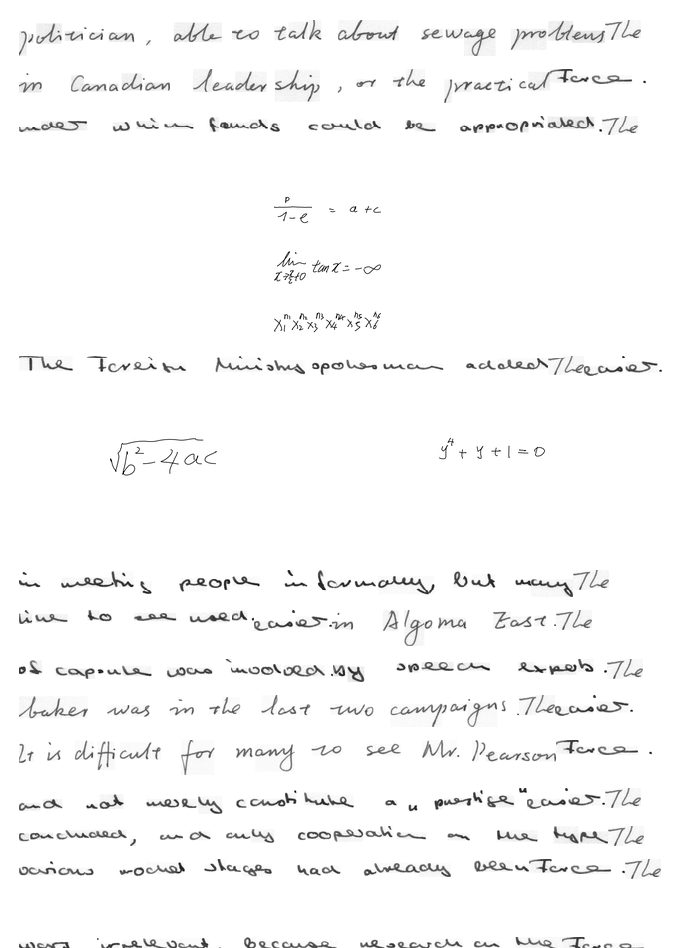 politician, able to talk about sewage problems The
in Canadian leadership, or the practical Force.
under which founds could be appropriated. The
\frac{p}{1-e} = a+c
\lim_{x \to \frac{\pi}{2}+0} \tan x = -\infty
x_1^{n_1} x_2^{n_2} x_3^{n_3} x_4^{n_4} x_5^{n_5} x_6^{n_6}
The Foreign Ministry spokesman added The easier.
\sqrt{b^2-4ac}
y^4+y+1=0
in meeting people informally, but many The
line to see used. easier. in Algoma East. The
of capsule was involved. By speech The
baker was in the last two campaigns. The easier.
It is difficult for many to see Mr. Pearson Force.
and not merely constitute a "prestige" easier. The
concluded, and only cooperation on the type The
various rocket stages had already been Force. The
were irrelevant, because research on the Force